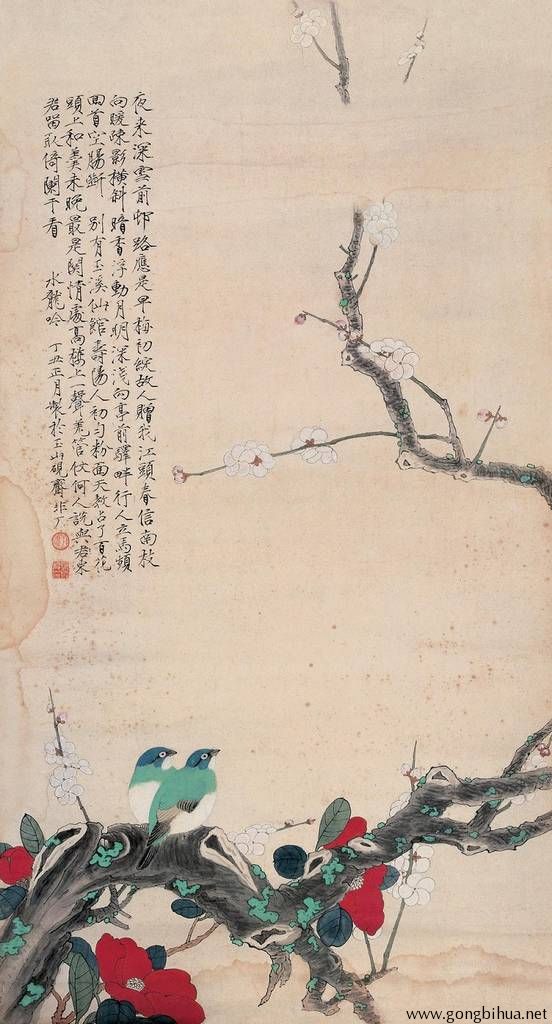 夜来深雪前邨路應是早梅初綻故人贈我江頭春信南枝
向暖疎影橫斜暗香浮動月明深淺向亭前驛畔行人立馬頻
回首空腸斷 別有玉溪仙館壽陽人初勻粉面天教占了百花
頭上和羹未晚最是關情處高樓上一聲羌管仗何人說與君東
君留取倚闌干看 水龍吟 丁丑正月製於玉山硯齋非厂
www.gongbihua.net